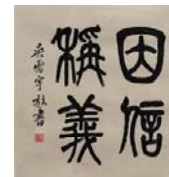 因信
稱義
書